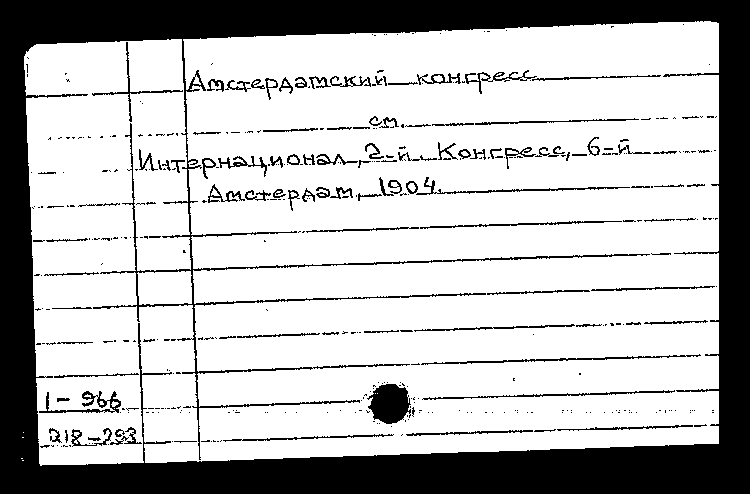 Амстердамский конгресс
см.
Интернационал, 2-й. Конгресс, 6-й
Амстердам, 1904.
1 - 966
218-293